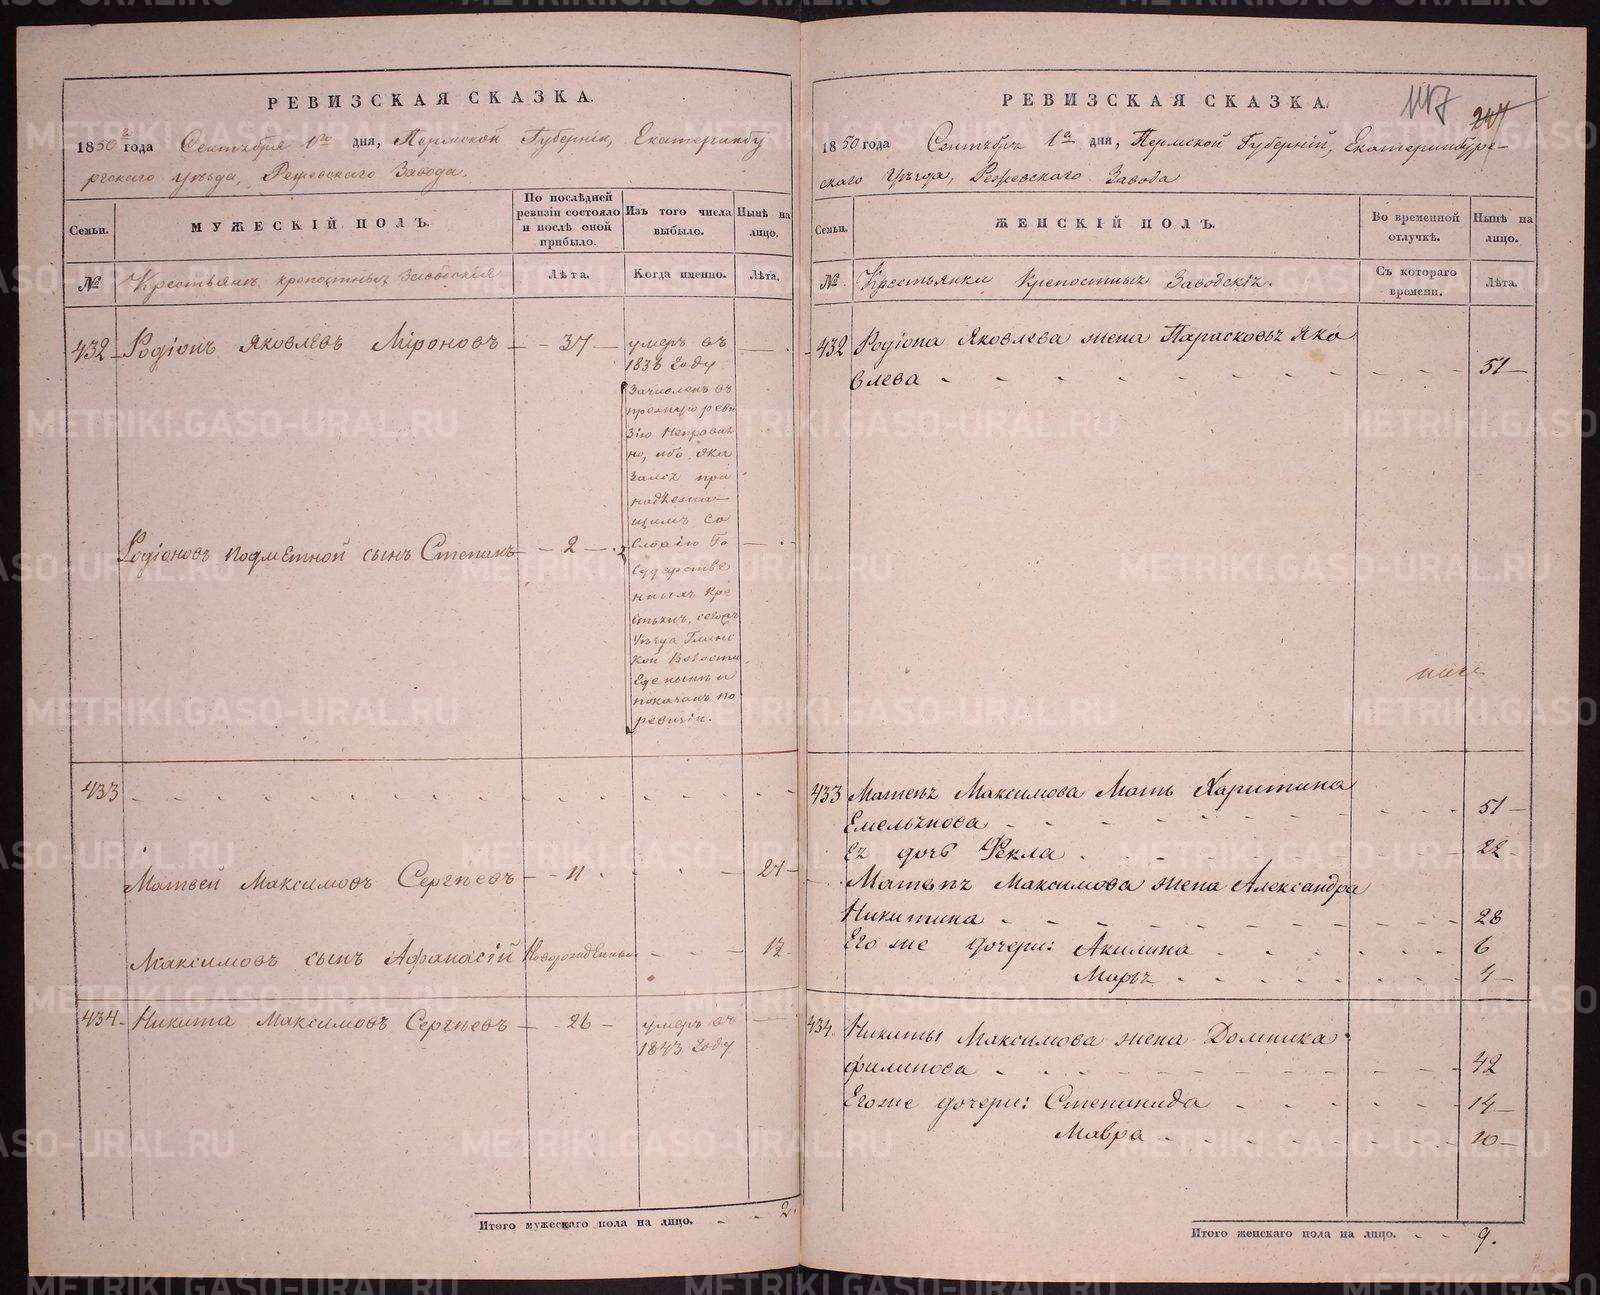 РЕВИЗСКАЯ СКАЗКА.
1850 года Сентября 1го дня, Пермской Губернiи, Екатеринбу
ргскаго уѣзда, Режевскаго Завода.
Семьи.
МУЖЕСКІЙ ПОЛЪ.
По послѣдней ревизіи состояло и послѣ оной прибыло.
Изъ того числа выбыло.
Нынѣ на лицо.
№
Крестьянъ крепостныхъ Заводскія
Лѣта.
Когда именно.
Лѣта.
432 Родіонъ Яковлевъ Міроновъ 37 умеръ въ
1838 году
Зачисленъ въ
прежнюю реви
зію неправиль
но, ибо ока
зался при
надлежа
щимъ со
словію Го
Родіоновъ подметной сынъ Степанъ 2
сударстве
нныхъ кре
стьянъ, сего
уѣзда Глинс
кой Волости
и показанъ по
ревизіи.
433
Матвей Максимовъ Сергѣевъ 11 24
Максимовъ сынъ Афанасій Новорожденный 12
434 Никита Максимовъ Сергѣевъ 26 умеръ въ
1843 году
Итого мужескаго пола на лицо. 2.
РЕВИЗСКАЯ СКАЗКА.
1850 года Сентября 1го дня, Пермской Губерній, Екатеринбург-
скаго Уѣзда, Режевскаго Завода
Семьи.
ЖЕНСКІЙ ПОЛЪ.
Во временной отлучкѣ.
Нынѣ на лицо.
№
Крестьянки Крепостныхъ Заводскіх.
Съ котораго времени.
Лѣта.
432 Родіона Яковлева жена Парасковья Яко
влева 51
433 Матвѣя Максимова Мать Харитина
Емельянова 51
Ея дочь Фекла 22
Матвѣя Максимова жена Александра
Никитина 28
Его же дочери: Акилина 6
Марья 4
434 Никиты Максимова жена Домника
Филипова 42
Его же дочери: Степанида 14
Мавра 10
Итого женскаго пола на лицо. 9.
METRIKI.GASO-URAL.RU